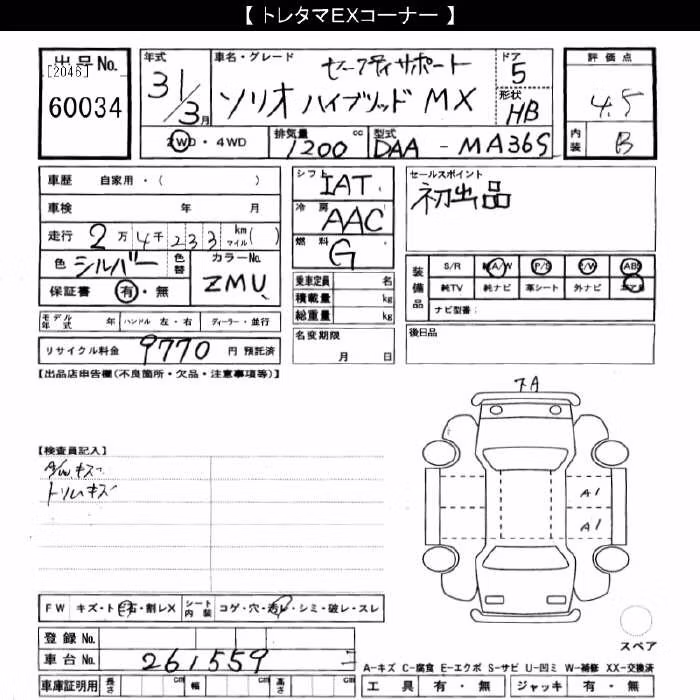 【 トレタマEXコーナー 】
出品No.
[2046]
60034
年式
31/3月
車名・グレード
セーフティサポート
ソリオ ハイブリッド MX
ドア
5
形状
HB
評価点
4.5
内装
B
2WD・4WD
排気量 1200 cc
型式 DAA - MA36S
車歴 自家用・( )
車検 年 月
走行 2万4千233 km マイル( )
色 シルバー 色替
カラーNo.
ZMU
保証書 有・無
シフト IAT
冷房 AAC
燃料 G
セールスポイント
初出品
装備品
S/R 純A/W P/S P/W ABS
純TV 純ナビ 革シート 外ナビ エアB
ナビ型番:
乗車定員 名
積載量 kg
総重量 kg
モデル年式 年 ハンドル 左・右 ディーラー・並行
リサイクル料金 9770 円 預託済
名変期限
月 日
後日品
【出品店申告欄(不良箇所・欠品・注意事項等)】
【検査員記入】
A/Wキズ
トリムキズ
フA
A1
A1
スペア
FW キズ・ト石・割レX
シート内装 コゲ・穴・汚レ・シミ・破レ・スレ
登録No.
車台No. 261559
車庫証明用 長さ cm 幅 cm 高さ cm
A-キズ C-腐食 E-エクボ S-サビ U-凹ミ W-補修 XX-交換済
工具 有・無 ジャッキ 有・無